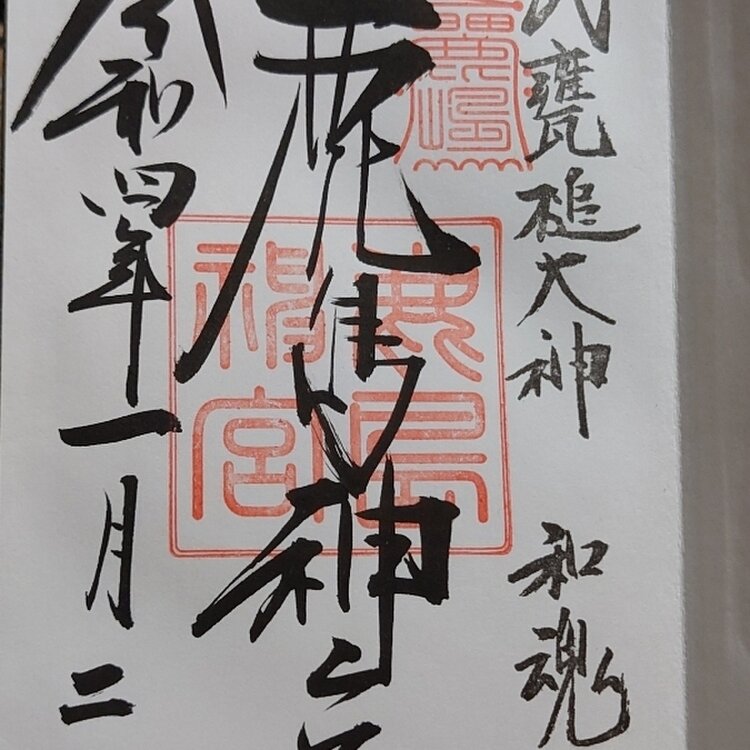 武甕槌大神 和魂
鹿島神宮
令和四年一月二
鹿嶋
鹿島
神宮